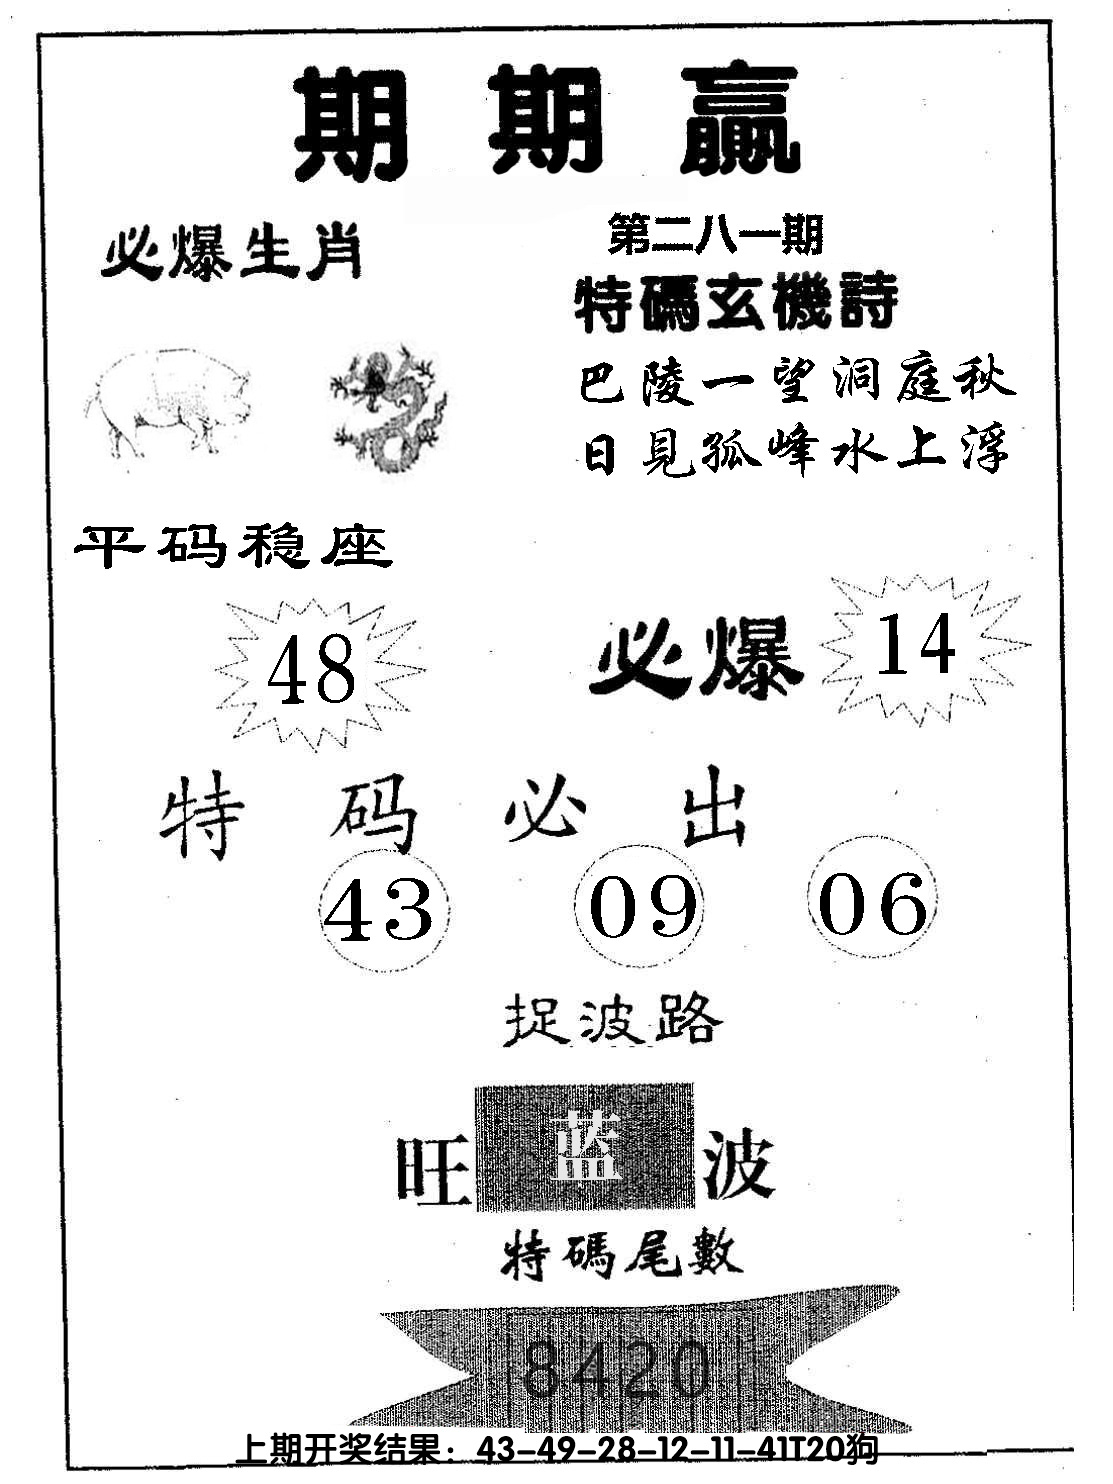 期期赢
必爆生肖
第二八一期
特碼玄機詩
巴陵一望洞庭秋
日見孤峰水上浮
平码稳座
48
必爆
14
特码必出
43 09 06
捉波路
旺蓝波
特碼尾數
8420
上期开奖结果：43-49-28-12-11-41T20狗